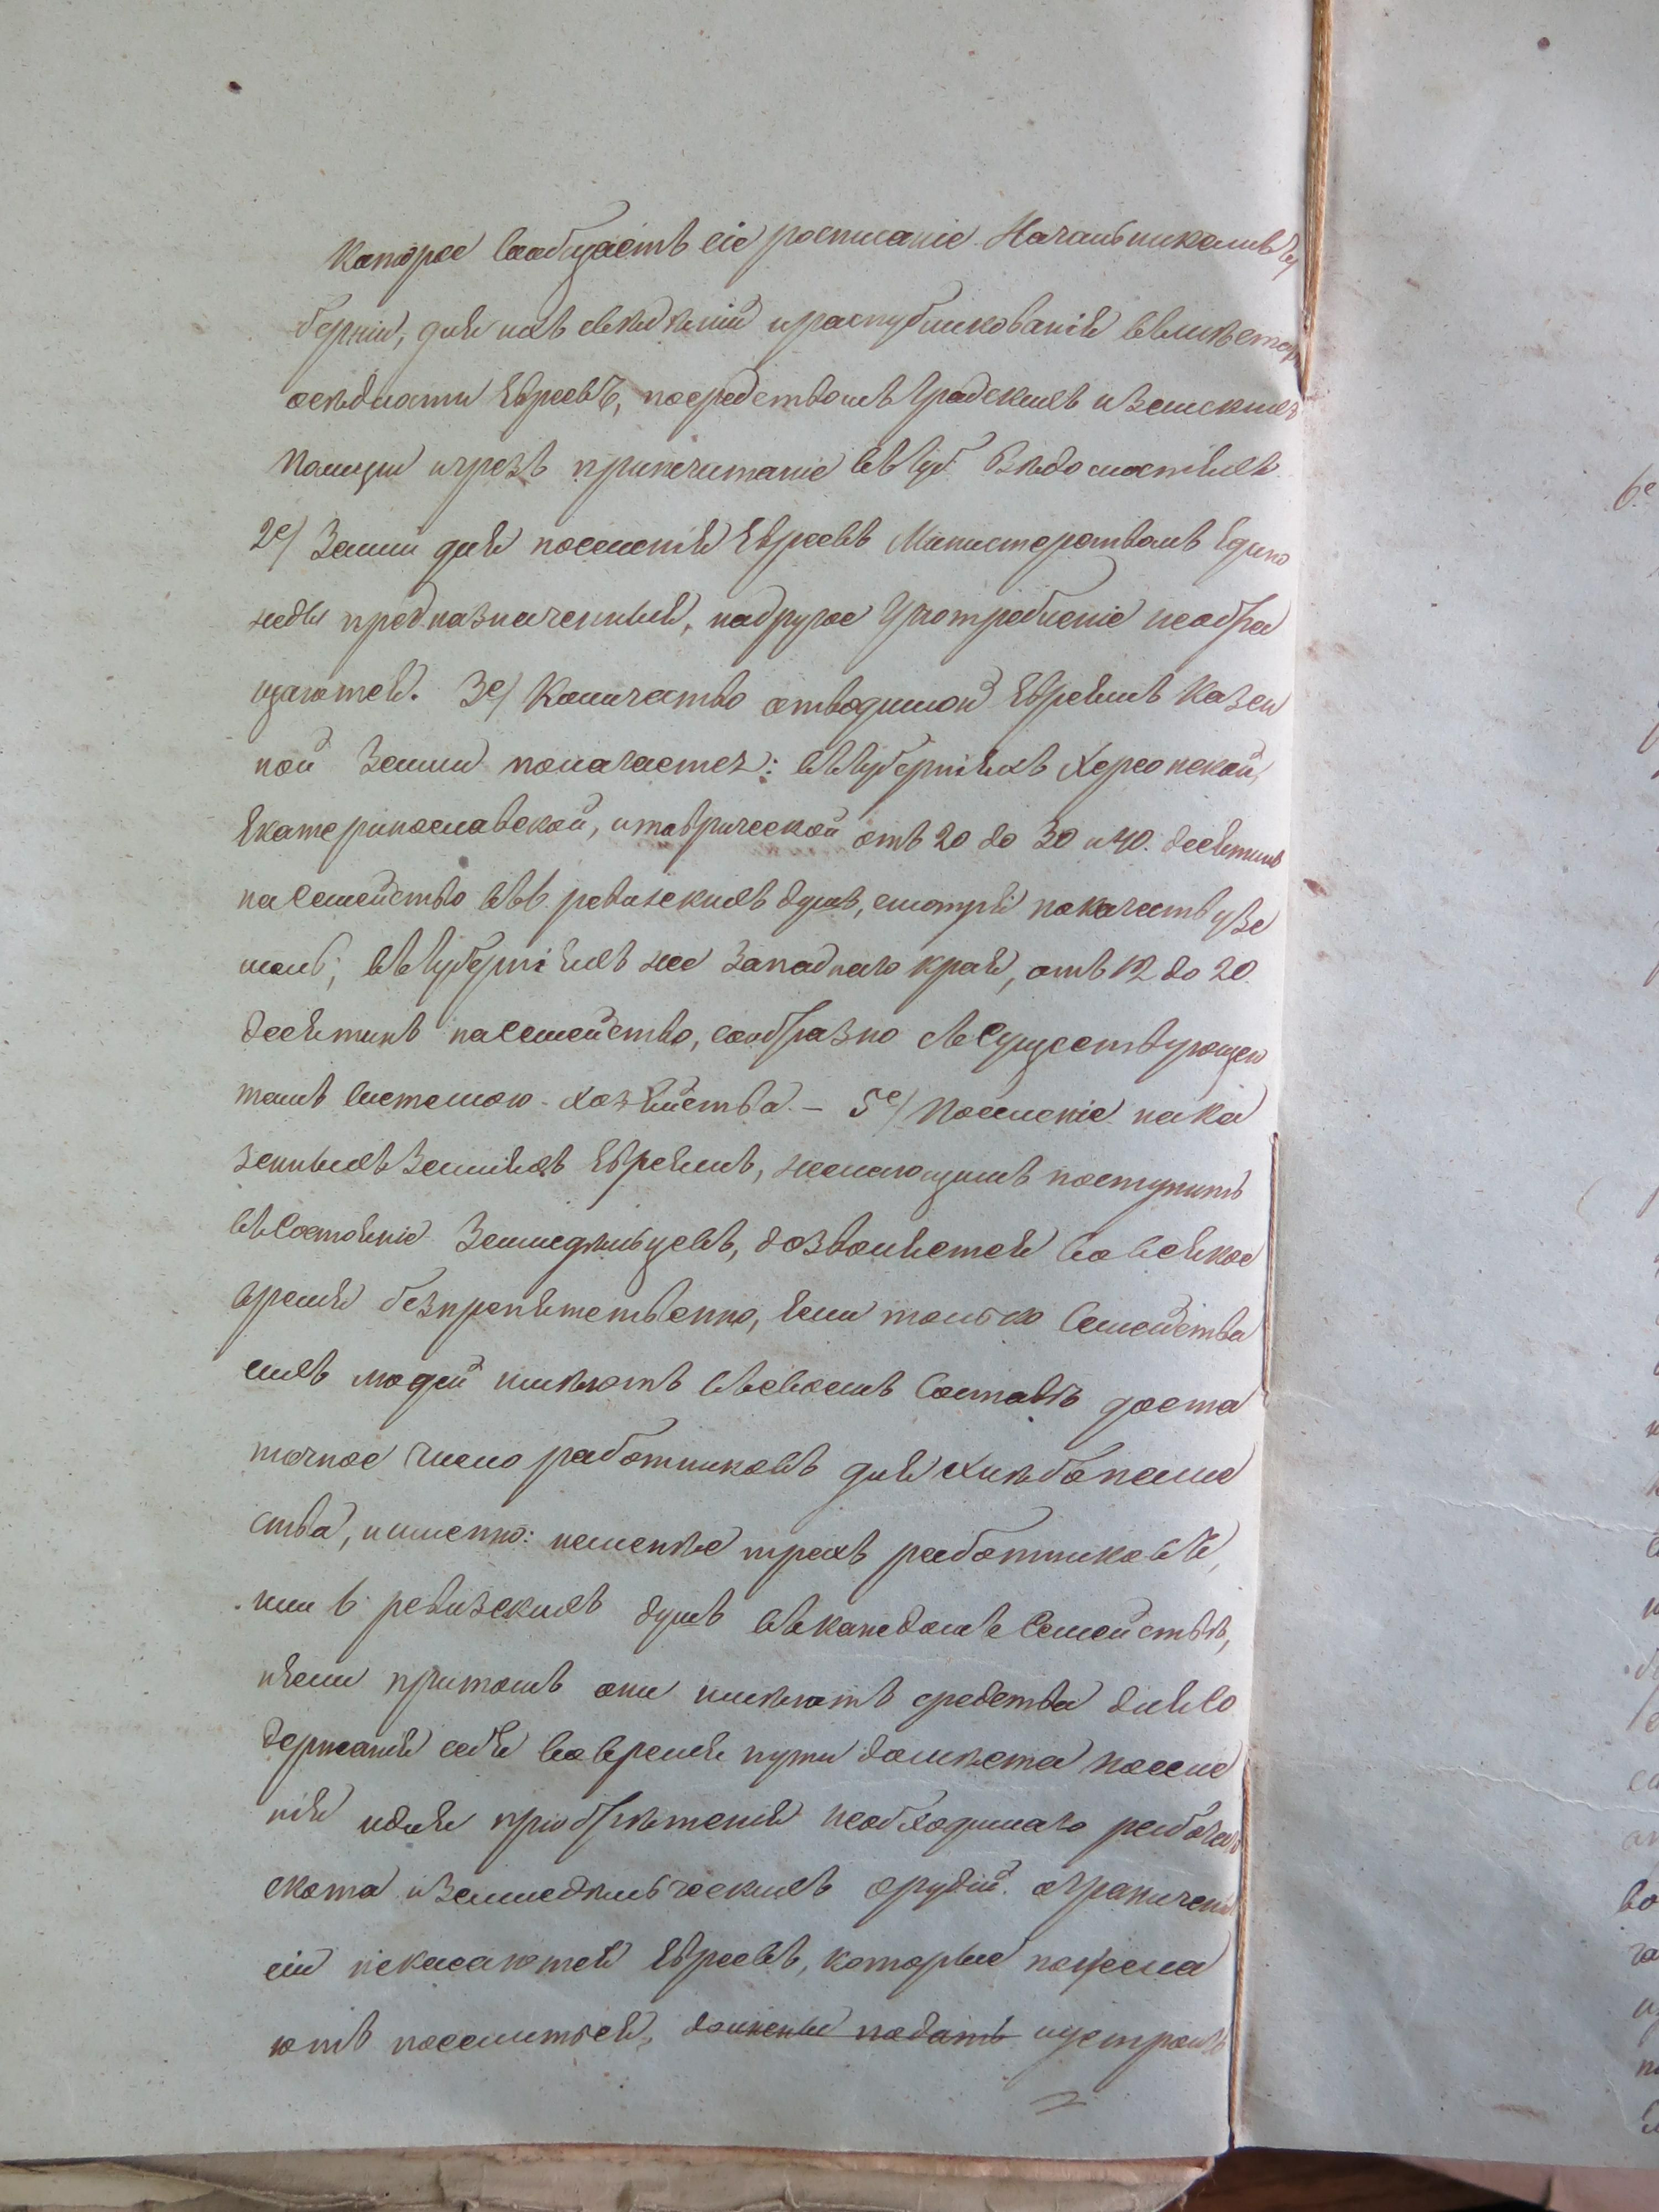 которое сообщаетъ сіе росписаніе Начальникамъ Гу
берніи, для ихъ свѣдѣній и распубликованія въ мѣстахъ
осѣдлости Евреевъ, посредствомъ Градскихъ и Земскихъ
Полиціи и чрезъ припечитаніе въ Губ. Вѣдомостяхъ.
2е) Земли для поселенія Евреевъ Министерствомъ Едино
жды предназначенныя, на другое Употребленіе необра
щаются. 3е) Количество отводимой Евреямъ Казен
ной Земли полагается: въ Губерніяхъ Херсонской,
Екатеринославской, и таврической отъ 20 до 30 и 40. десятинъ
на Семейство въ 6. ревизскихъ душъ, смотря по качеству зе
мель; въ Губерніяхъ же Западнаго края, отъ 12 до 20.
десятинъ на Семейство, сообразно съ Существующею
тамъ Системою Хозяйства. – 5е) Поселеніе на ка
зенныхъ Земляхъ Евреямъ, желающимъ поступить
въ Состояніе Земледѣльцевъ, дозволяется во всякое
время безпрепятственно, если только Семейства
сихъ людей имѣютъ въ своемъ Составѣ доста
точное число работниковъ для хлѣбопаше
ства, и именно: неменѣе трехъ работниковъ,
или 6 ревизскихъ душъ въ каждомъ Семействѣ,
и если притомъ они имѣютъ средства для Со
держанія себя во время пути до мѣста поселе
нія и для пріобрѣтенія необходимаго рабочаго
скота и Земледѣльческихъ орудій. ограниченія
сіи некасаются Евреевъ, которые пожела
ютъ поселиться, должны подать